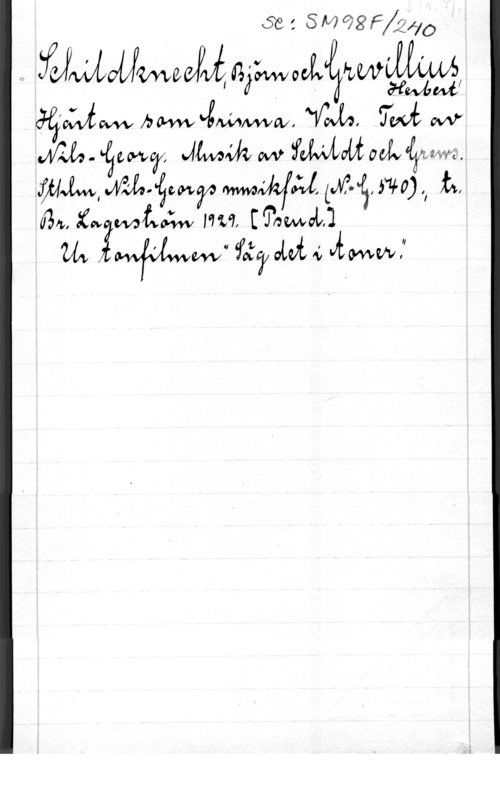 Sc: SM98F/240
Schildknecht, Björn och Grevillius,
Herbert
Hjärtan som brinna. Vals. Text av
Nils-Georg. Musik av Schildt och Grews.
Sthlm, Nils-Georgs musikförl. (N.-G. 540)., tr.
Br. Lagerström 1929. [Pseud.]
Ur tonfilmen "Säg det i toner."